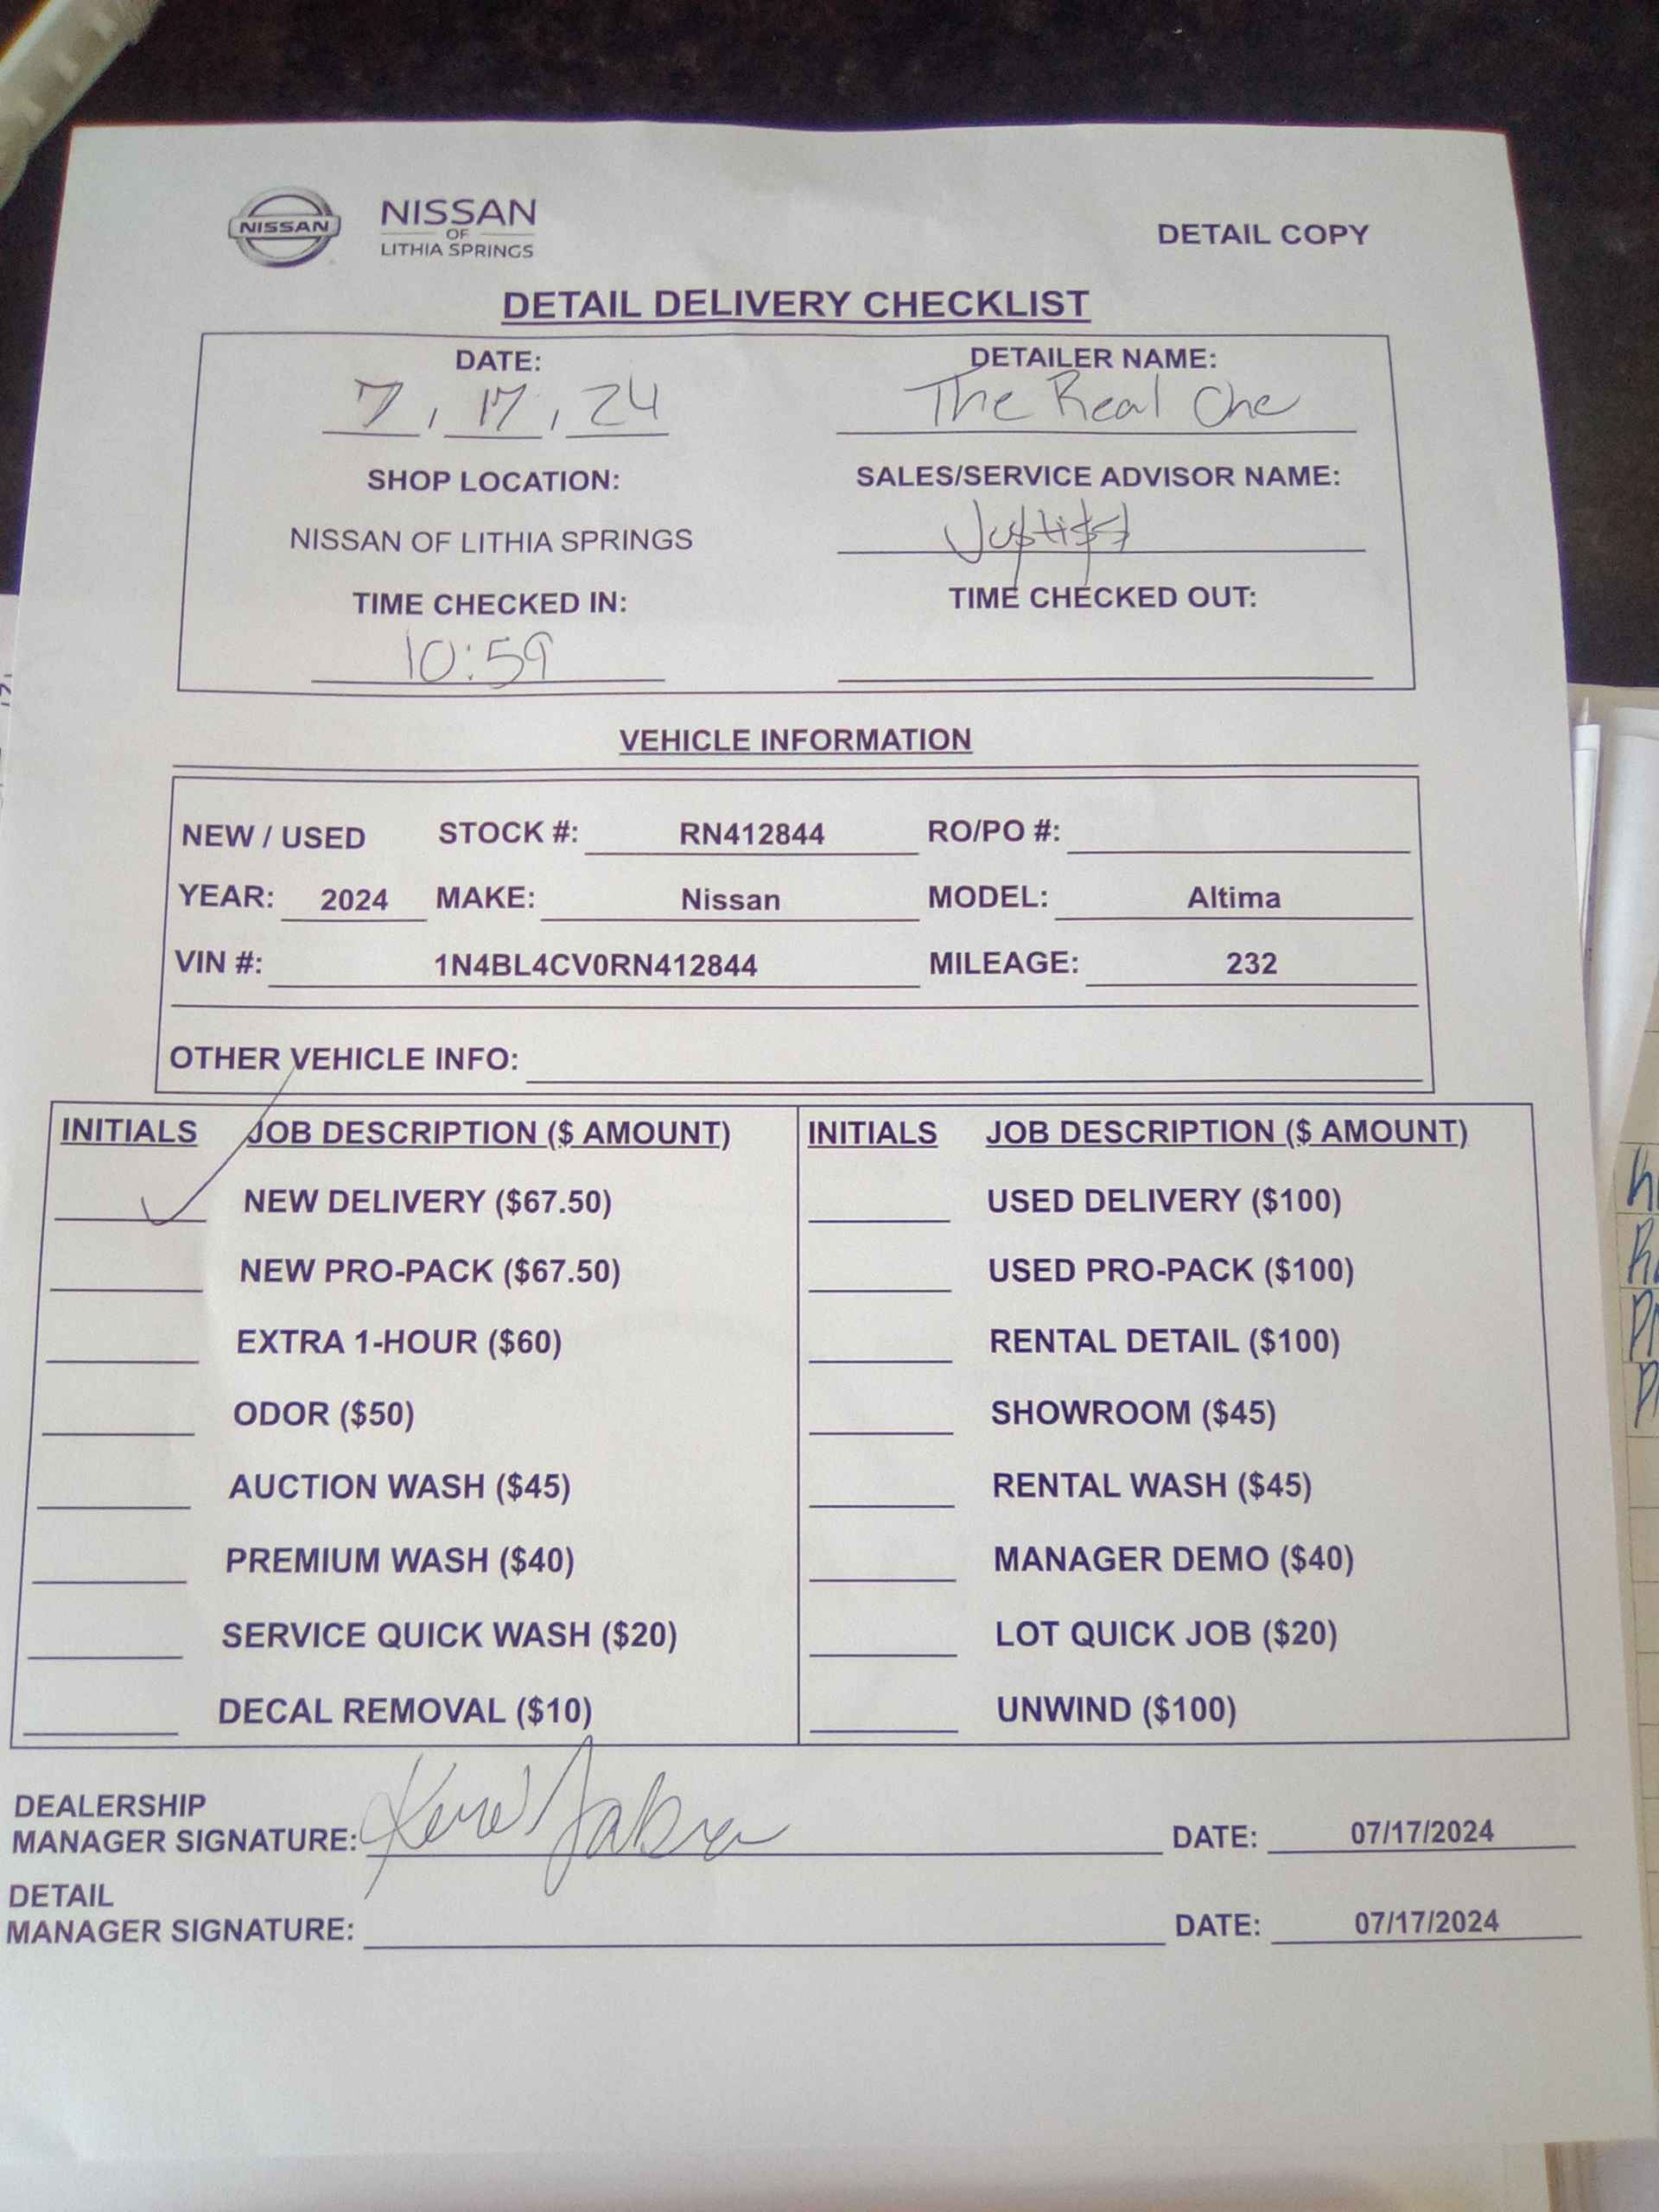 NISSAN
NISSAN
OF
LITHIA SPRINGS
DETAIL COPY
DETAIL DELIVERY CHECKLIST
DATE: DETAILER NAME:
7, 17, 24 The Real Che
SHOP LOCATION: SALES/SERVICE ADVISOR NAME:
NISSAN OF LITHIA SPRINGS
TIME CHECKED IN: TIME CHECKED OUT:
10:59
VEHICLE INFORMATION
NEW / USED STOCK #: RN412844 RO/PO #:
YEAR: 2024 MAKE: Nissan MODEL: Altima
VIN #: 1N4BL4CV0RN412844 MILEAGE: 232
OTHER VEHICLE INFO:
INITIALS JOB DESCRIPTION ($ AMOUNT) INITIALS JOB DESCRIPTION ($ AMOUNT)
NEW DELIVERY ($67.50) USED DELIVERY ($100)
NEW PRO-PACK ($67.50) USED PRO-PACK ($100)
EXTRA 1-HOUR ($60) RENTAL DETAIL ($100)
ODOR ($50) SHOWROOM ($45)
AUCTION WASH ($45) RENTAL WASH ($45)
PREMIUM WASH ($40) MANAGER DEMO ($40)
SERVICE QUICK WASH ($20) LOT QUICK JOB ($20)
DECAL REMOVAL ($10) UNWIND ($100)
DEALERSHIP
MANAGER SIGNATURE: DATE: 07/17/2024
DETAIL
MANAGER SIGNATURE: DATE: 07/17/2024